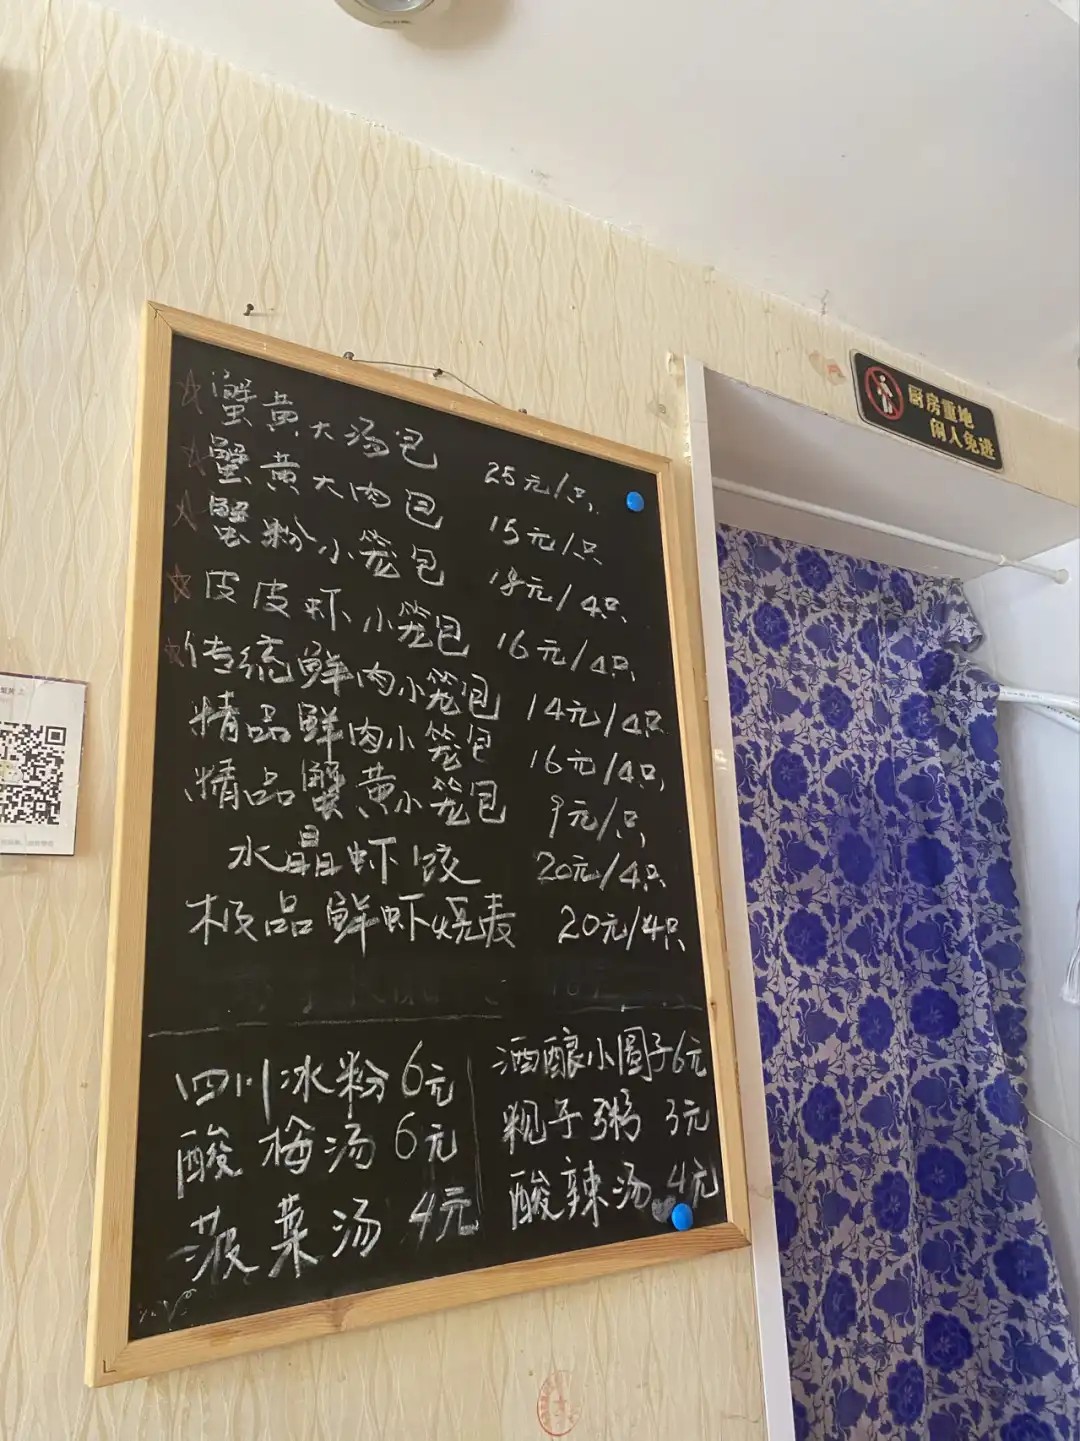 蟹黄大汤包 25元/只
蟹黄大肉包 15元/只
蟹粉小笼包 18元/4只
皮皮虾小笼包 16元/4只
传统鲜肉小笼包 14元/4只
精品鲜肉小笼包 16元/4只
精品蟹黄小笼包 9元/只
水晶虾饺 20元/4只
极品鲜虾烧麦 20元/4只
四川冰粉 6元
酸梅汤 6元
菠菜汤 4元
酒酿小圆子 6元
粯子粥 3元
酸辣汤 4元
厨房重地
闲人免进